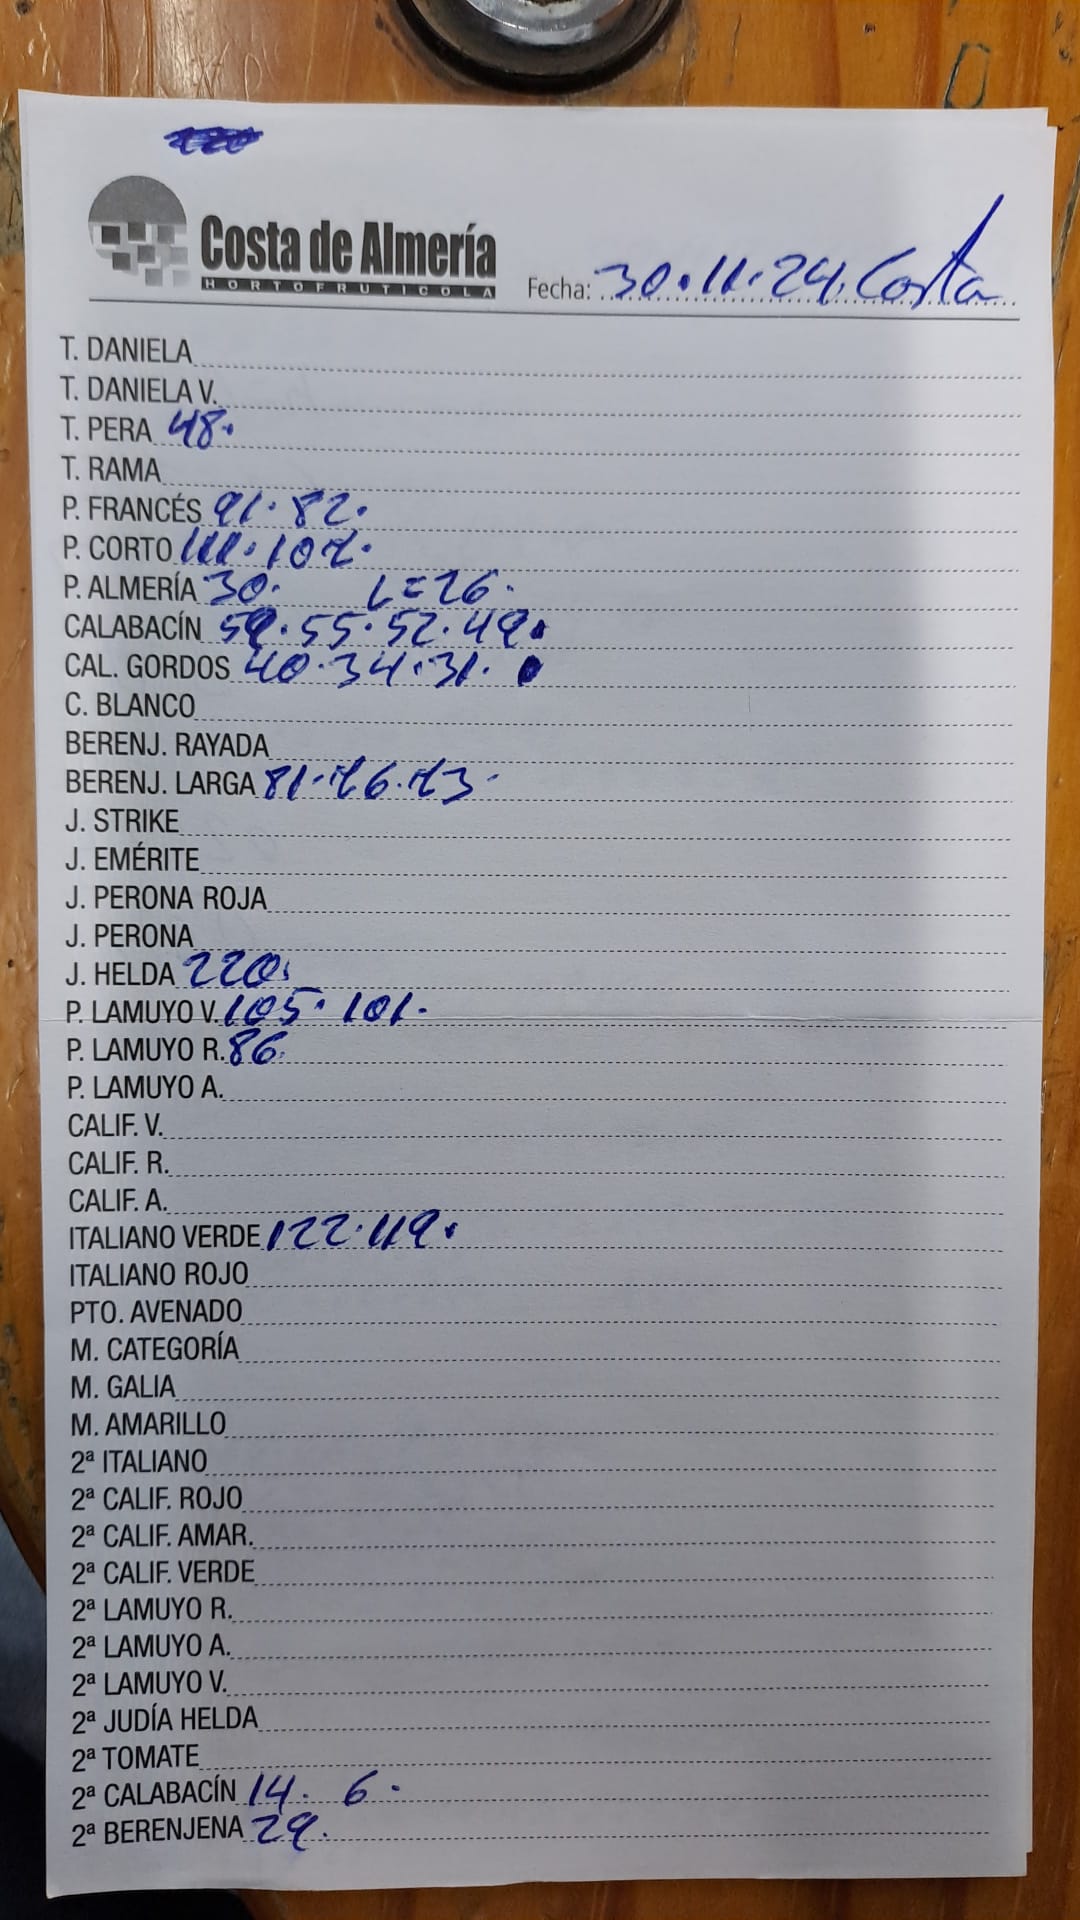 Costa de Almería
HORTOFRUTICOLA
Fecha: 30.11.24. Costa
T. DANIELA
T. DANIELA V.
T. PERA 48.
T. RAMA
P. FRANCÉS 91. 82.
P. CORTO 111. 107.
P. ALMERÍA 30. L=26.
CALABACÍN 59. 55. 52. 49.
CAL. GORDOS 40. 34. 31.
C. BLANCO
BERENJ. RAYADA
BERENJ. LARGA 81. 76. 73.
J. STRIKE
J. EMÉRITE
J. PERONA ROJA
J. PERONA
J. HELDA 220.
P. LAMUYO V. 105. 101.
P. LAMUYO R. 86.
P. LAMUYO A.
CALIF. V.
CALIF. R.
CALIF. A.
ITALIANO VERDE 122. 119.
ITALIANO ROJO
PTO. AVENADO
M. CATEGORÍA
M. GALIA
M. AMARILLO
2ª ITALIANO
2ª CALIF. ROJO
2ª CALIF. AMAR.
2ª CALIF. VERDE
2ª LAMUYO R.
2ª LAMUYO A.
2ª LAMUYO V.
2ª JUDÍA HELDA
2ª TOMATE
2ª CALABACÍN 14. 6.
2ª BERENJENA 29.